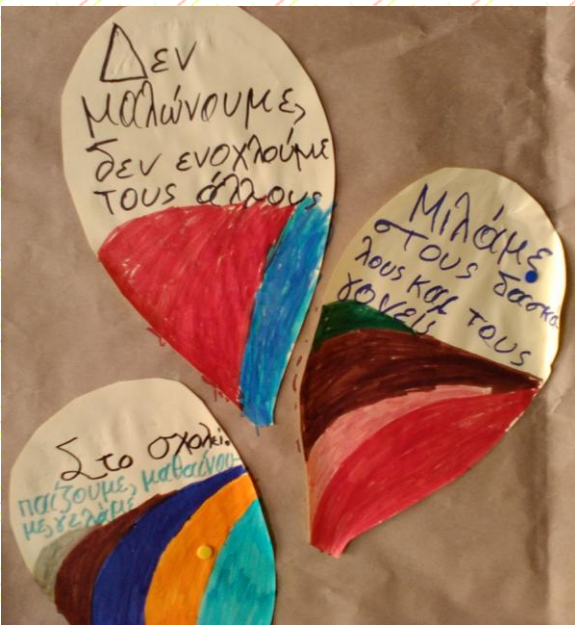 Δεν
μαλώνουμε,
δεν ενοχλούμε
τους άλλους
Μιλάμε
στους δασκά
λους και τους
γονείς
Στο σχολεί.
παίζουμε, μαθαίνου-
με, γελάμε